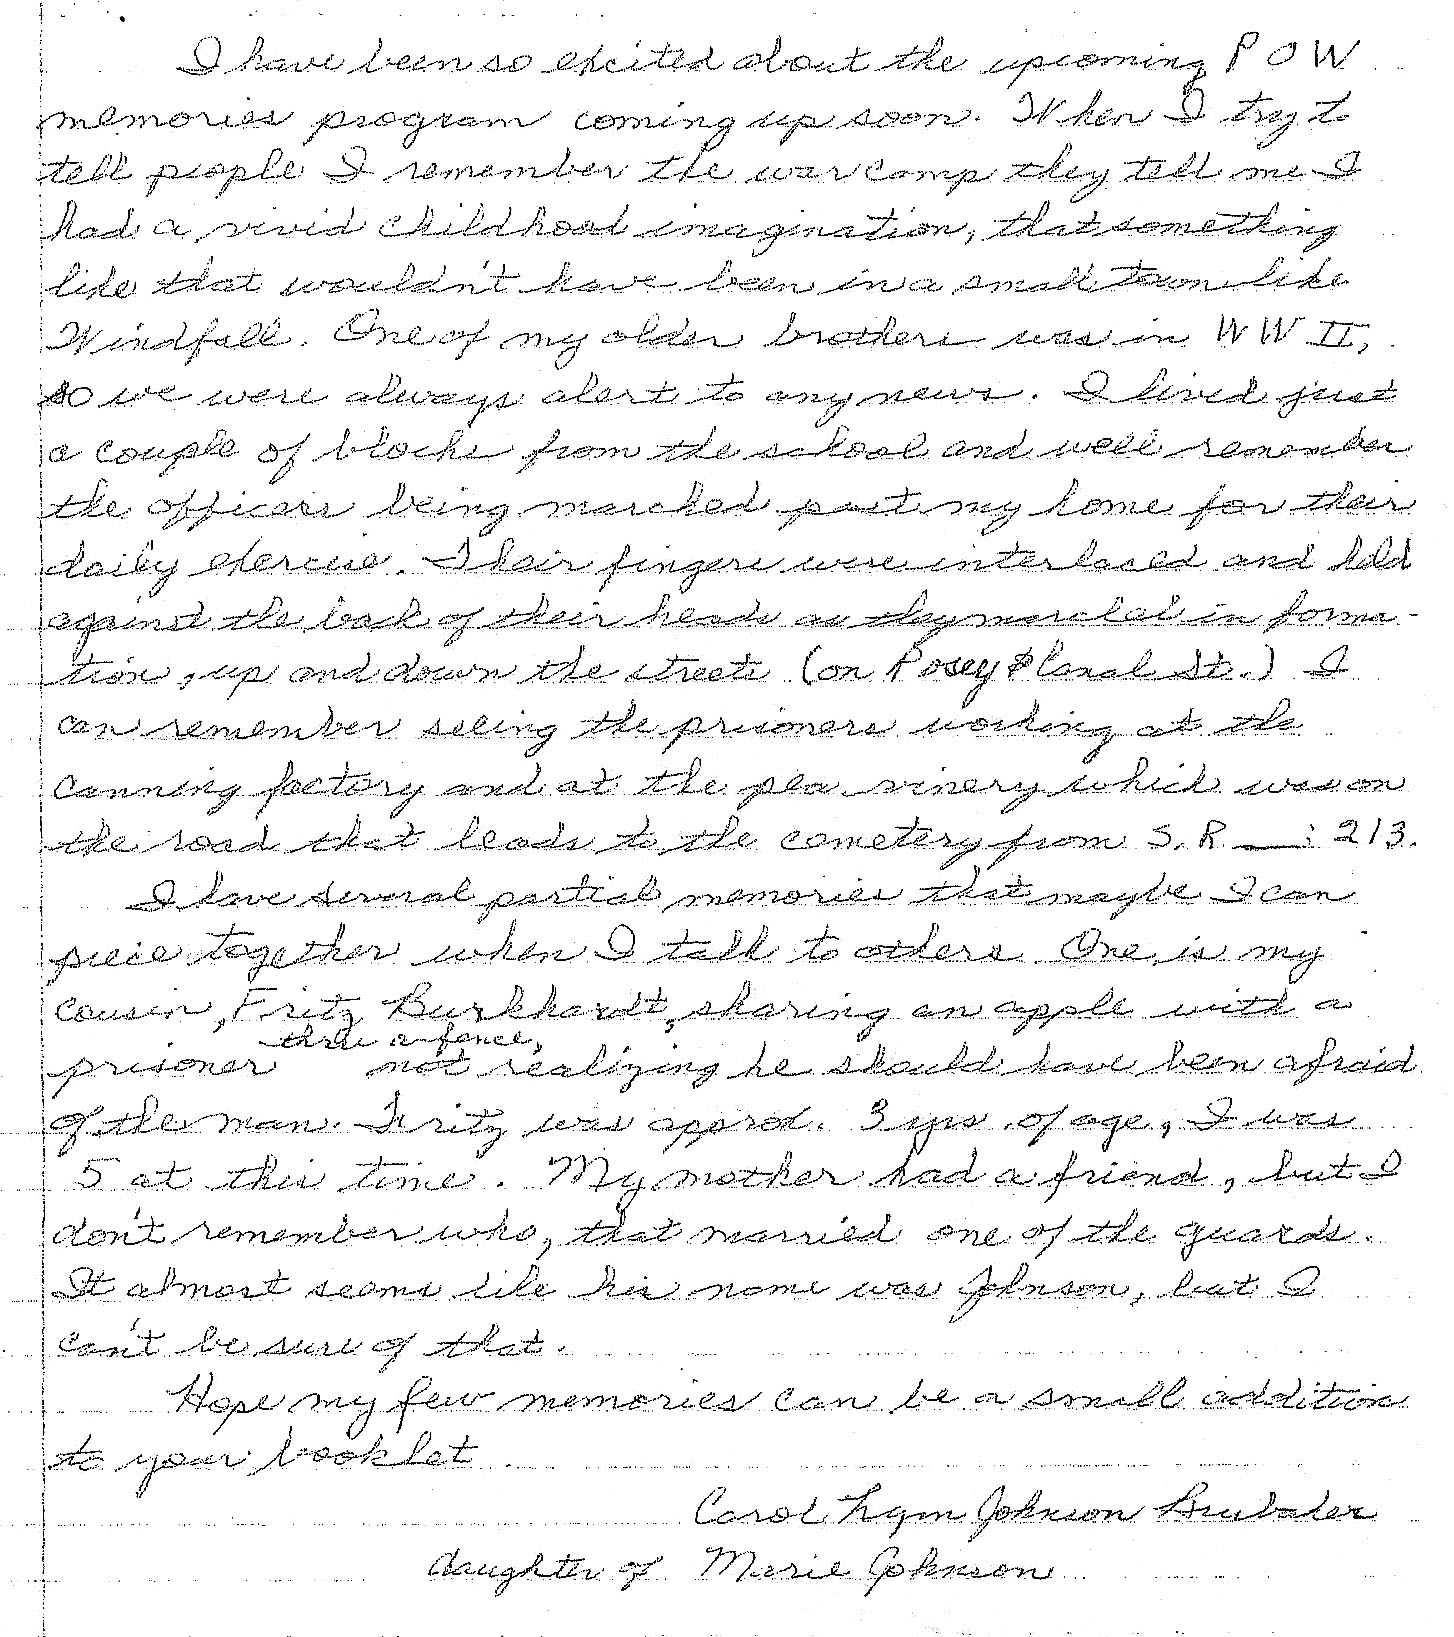 I have been so excited about the upcoming POW
memories program coming up soon. When I try to
tell people I remember the war camp they tell me I
had a vivid childhood imagination, that something
like that wouldn't have been in a small town like
Windfall. One of my older brothers was in WW II,
so we were always alert to any news. I lived just
a couple of blocks from the school and well remember
the officers being marched past my home for their
daily exercise. Their fingers were interlaced and held
against the back of their heads as they marched in forma-
tion, up and down the streets (on Posey & Canal St.) I
can remember seeing the prisoners working at the
canning factory and at the pea vinery which was on
the road that leads to the cemetery from S.R. __: 213.
I have several partial memories that maybe I can
piece together when I talk to others. One is my
cousin, Fritz Burkhardt, sharing an apple with a
thru a fence,
prisoner not realizing he should have been afraid
of the man. Fritz was approx. 3 yrs. of age, I was
5 at this time. My mother had a friend, but I
don't remember who, that married one of the guards.
It almost seems like his name was Johnson, but I
can't be sure of that.
Hope my few memories can be a small addition
to your booklet.
Carol Lynn Johnson Brubaker
daughter of Marie Johnson